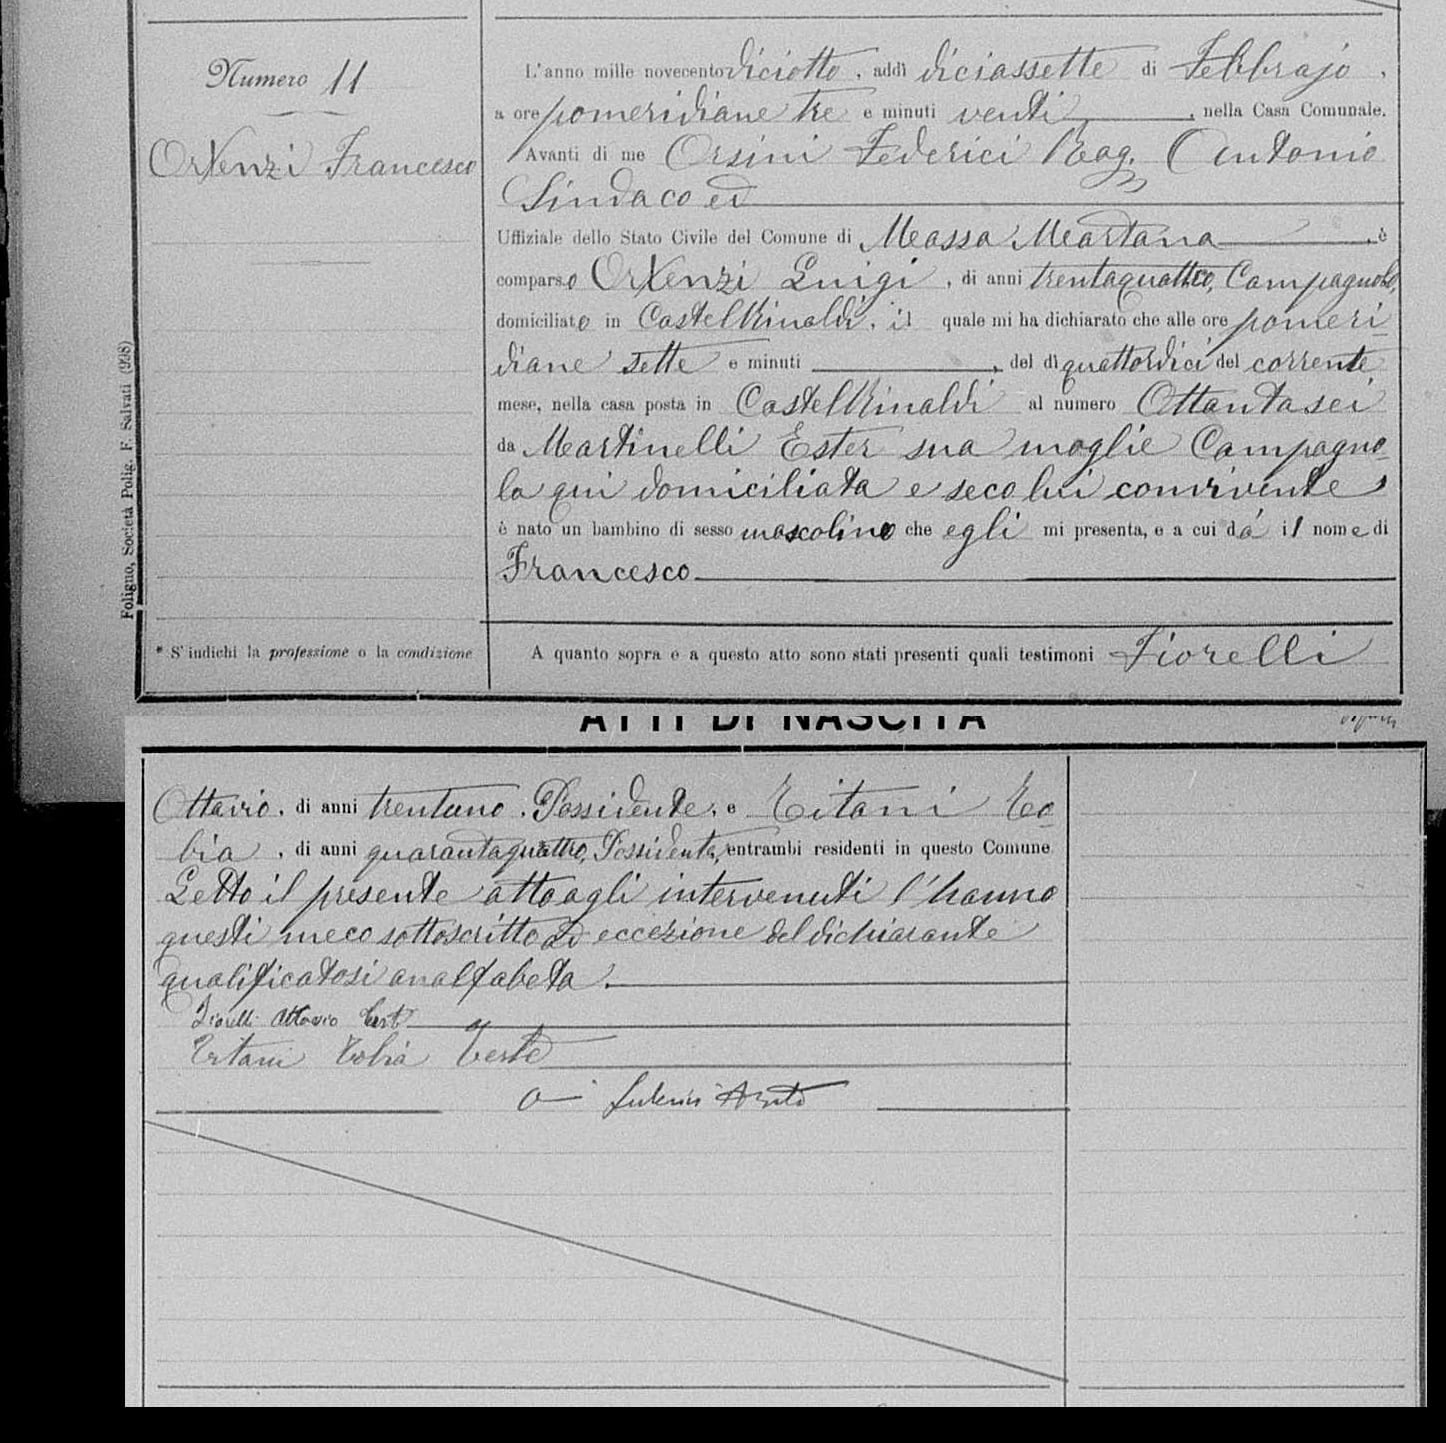 Numero 11
Orsenzi Francesco
* S'indichi la professione o la condizione
Foligno, Società Polig. F. Salvati (998)
L'anno mille novecentodiciotto, addì diciassette di Febbrajo,
a ore pomeridiane tre e minuti venti, nella Casa Comunale.
Avanti di me Orsini Federici Rag. Antonio
Sindaco ed
Uffiziale dello Stato Civile del Comune di Massa Martana, è
comparso Luigi, di anni trentaquattro, Campagnolo,
domiciliato in Castel Rinaldi, il quale mi ha dichiarato che alle ore pomeri
diane sette e minuti, del dì quattordici del corrente
mese, nella casa posta in Castel Rinaldi al numero Ottantasei
da Martinelli Ester sua moglie Campagno-
la qui domiciliata e seco lui convivente
è nato un bambino di sesso mascolino che egli mi presenta, e a cui dà il nome di
Francesco
A quanto sopra e a questo atto sono stati presenti quali testimoni Fiorelli
ATTI DI NASCITA
Ottavio, di anni trentuno, Possidente, e To-
bia, di anni quarantaquattro, Possidente, entrambi residenti in questo Comune
Letto il presente atto agli intervenuti l'hanno
questi meco sottoscritto ad eccezione del dichiarante
qualificatosi analfabeta.
Fiorelli Ottavio Test
Tobia Teste